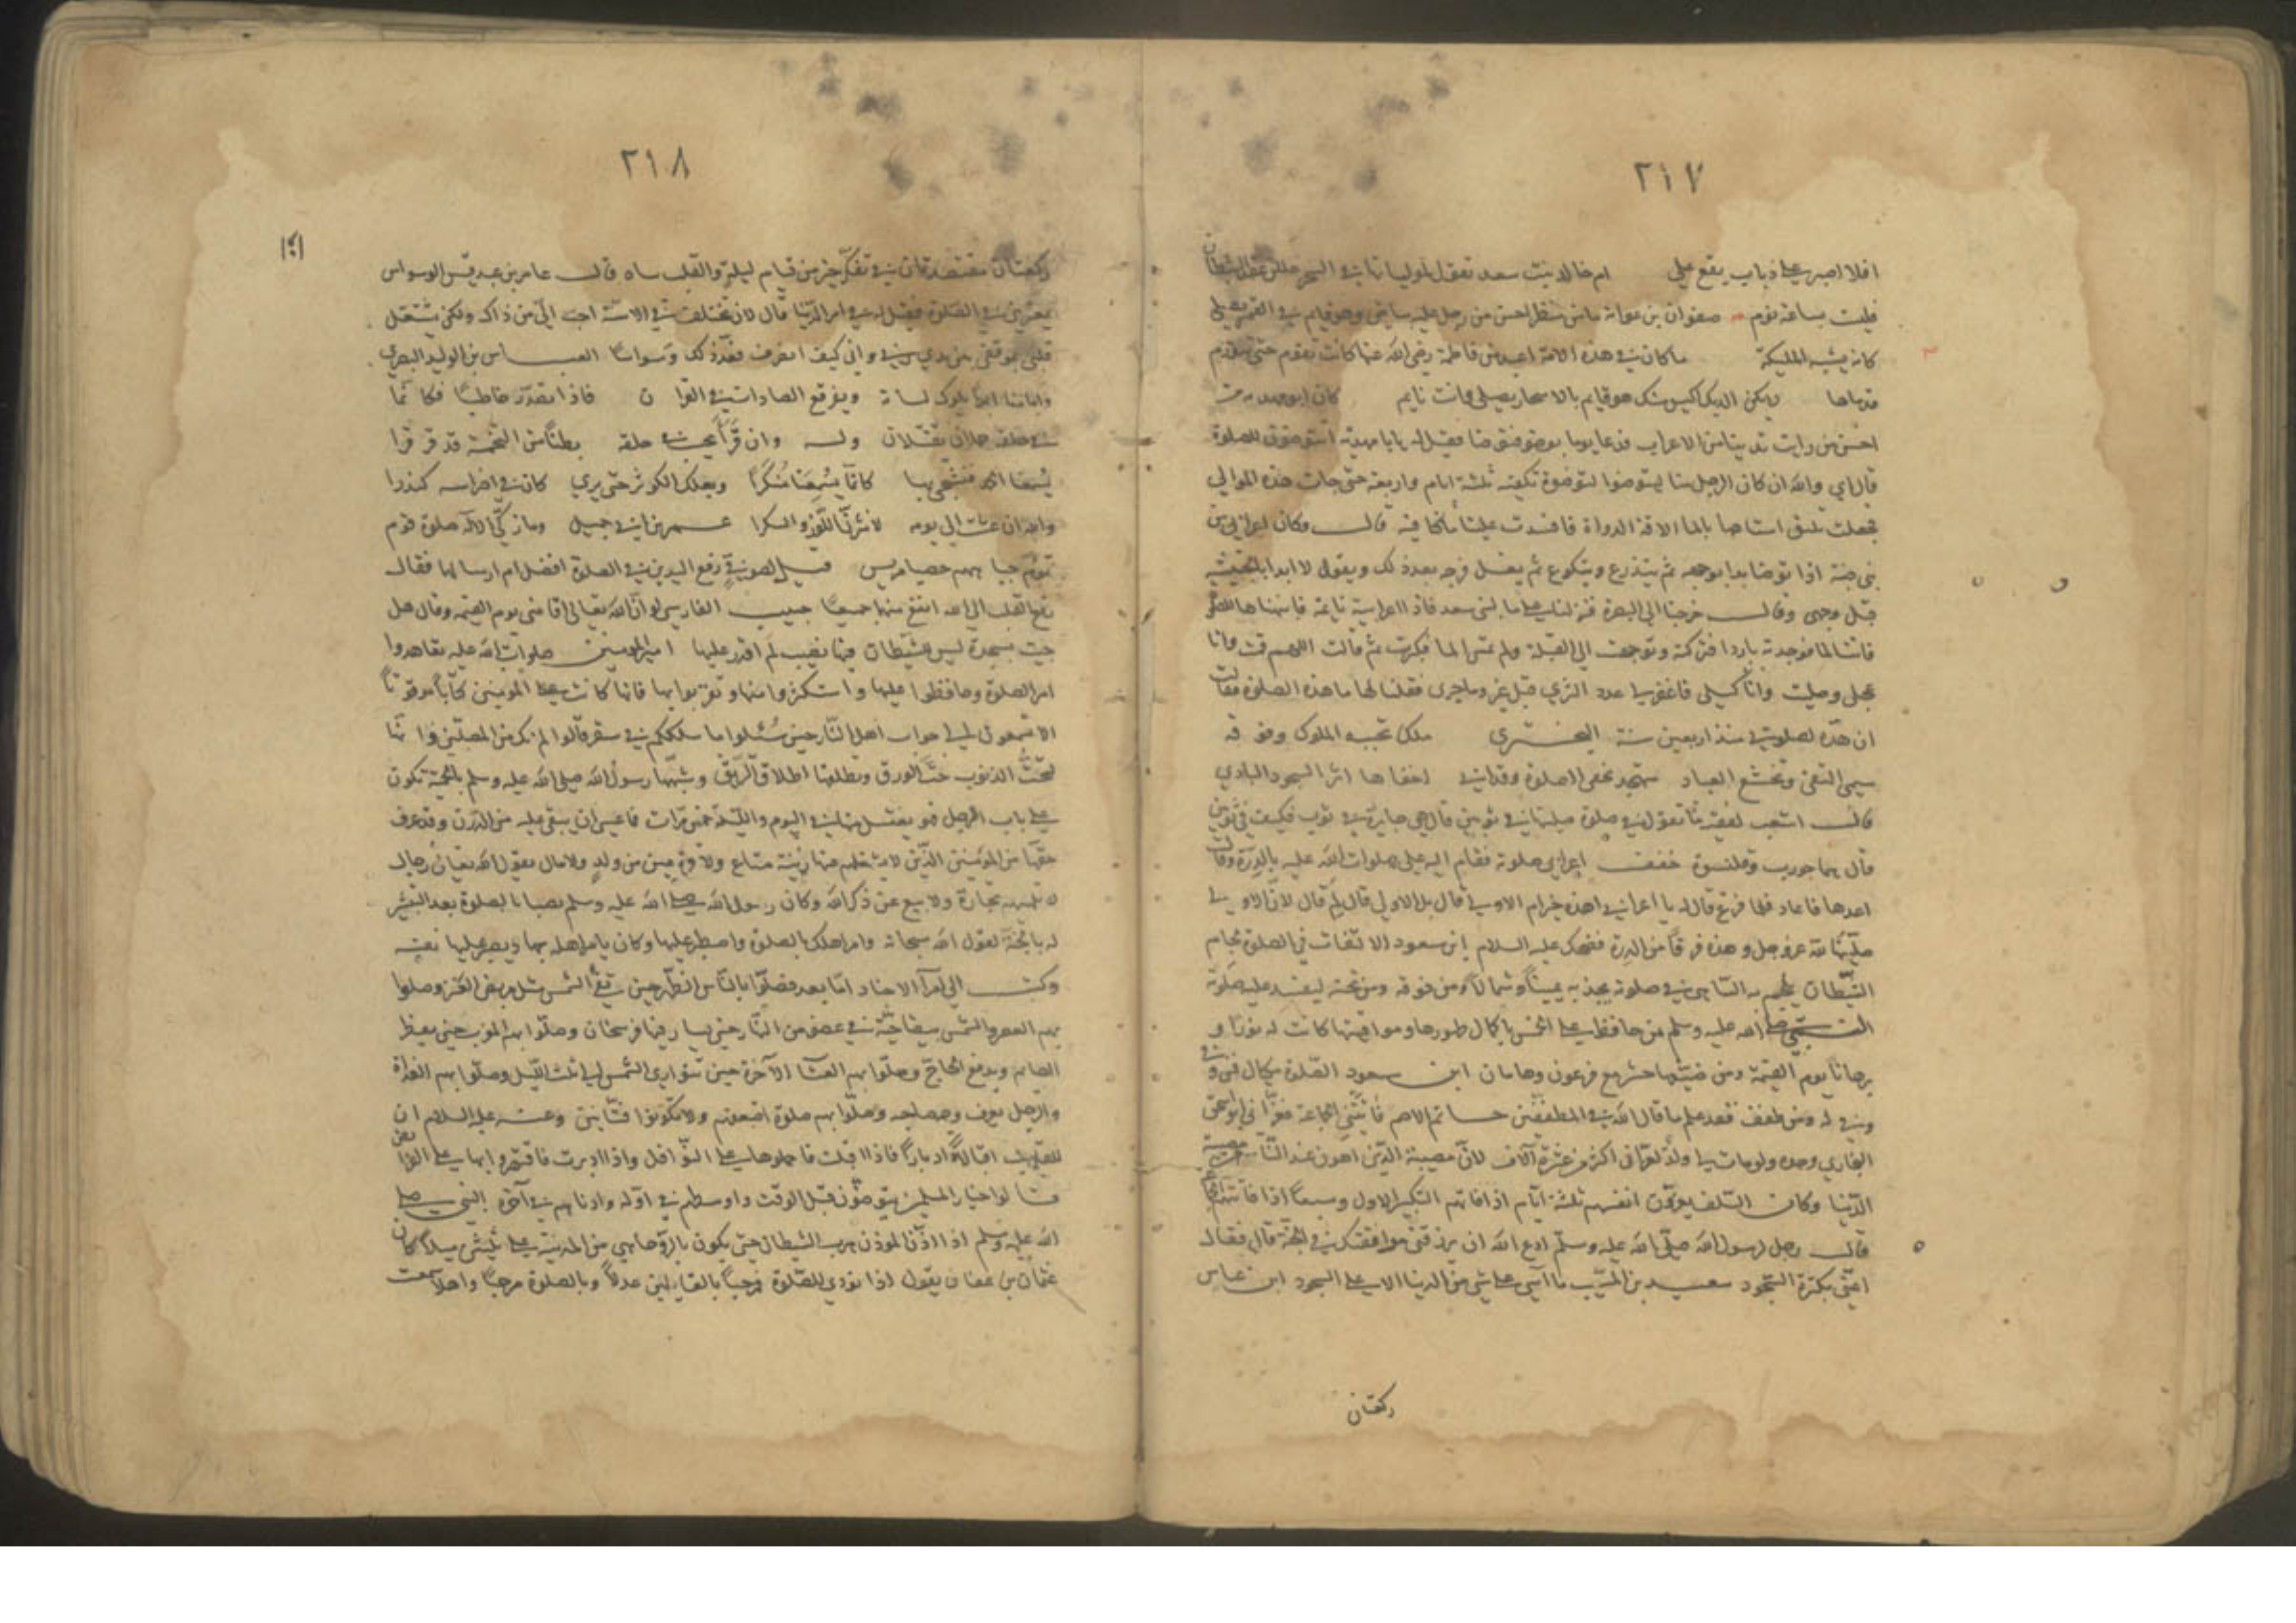 ٢١٧
افلا اصبر على ذباب يقع علي ام خالد بنت سعد تقول لمولياتها في السحر حللن عقد الشيطان
فليست بساعة نوم صفوان بن عوانة ما من منظر احسن من رجل عليه ثياب بيض وهو قايم في القمر يصلي
كانه يشبه المليكة ما كان في هذه الامة اعبد من فاطمة رضي الله عنها كانت تقوم حتى تورم
قدماها لا يكن الديك اكيس منك هو قايم بالاسحار يصلي وانت نايم كان ابو مهدية من
احسن من رايت تدينا من الاعراب فدعا يوما بوضو فتوضا فقيل له يا با مهدية اتتوضؤ للصلوة
قال اي والله ان كان الرجل منا ليتوضوا لتوضوة تكفيه ثلثة ايام واربعة حتى جات هذه الموالي
فجعلت تليق استاهها بالما الاقة الدواة فافسدت علينا ما كنا فيه قال وكان اعرابي من
بني ضبة اذا توضا بدا بوجهه ثم بتذرع وبتكوع ثم يغسل فرجه بعد ذلك ويقول لا ابدا بالخبيثة
قبل وجهي وقال خرجنا الى البصرة فنزلنا على ما لبني سعد فاذا اعرابية نايمة فانبهناها للصلوة
فاتت الما فوجدته باردا فتركته وتوجهت الى القبلة ولم تمس الما فكبرت ثم قالت اللهم قمت وانا
عجلى وصليت وانا كسلى فاغفر لي عدد الثرى قبل غز وما جرى فقلنا لها ما هذه الصلوة فقالت
ان هذه لصلوتي منذ اربعين سنة البحتري ملك تحييه الملوك وفوقه
سيمى التقى وتخشع العباد متهجد يخفي الصلوة وقد ابى اخفاها اثر السجود البادي
قال اشعب لفقيه ما تقول في صلوة صليتها في ثوبين قال هي جايزة في ثوب فكيف في ثوبين
قال هما جورب وقلنسوة خفف اعرابي صلوته فقام اليه علي صلوات الله عليه بالدرة وقال
اعدها فاعاد فلما فرغ قال له يا اعرابي اهذه خير ام الاولى قال بل الاولى قال لم قال لان الاولى
صليتها لله عز وجل وهذه فرقا من الدرة فضحك عليه السلام ابن مسعود الالتفات في الصلوة لجام
الشيطان يلجم به الساهي في صلوته يجذبه يمينا وشمالا ومن فوقه ومن تحته ليفسد عليه صلوته
النبي صلى الله عليه وسلم من حافظ على الخمس باكمال طهورها ومواقيتها كانت له نورا و
برهانا يوم القيمة ومن ضيعها حشر مع فرعون وهامان ابن مسعود الصلوة مكيال فمن وفى
وفي له ومن طفف فقد علم ما قال الله في المطففين حاتم الاصم فاتتني الجماعة فعزاني ابو اسحق
البخاري وحده ولو مات لي ولد لعزاني اكثر من عشرة آلاف لان مصيبة الدين اهون عند الناس من مصيبة
الدنيا وكان السلف يعزون انفسهم ثلثة ايام اذا فاتهم التكبير الاول وسبعا اذا فاتتهم الجماعة
قال رجل لرسول الله صلى الله عليه وسلم ادع الله ان يرزقني موافقتك في الجنة قال فقال
اعني بكثرة السجود سعيد بن المسيب ما آسى على شي من الدنيا الا على السجود ابن عباس
ركعتان
٢١٨
ركعتان مقتصدتان في تفكر خير من قيام ليلة والقلب ساه قال عامر بن عبد قيس الوسواس
يعتريني في الصلوة فقيل له في امر الدنيا قال لان تختلف في الاسنة احب الي من ذاك ولكن يشتغل
قلبي بموقفي بين يدي ربي واني كيف انصرف فعد ذلك وسواسا العباس بن الوليد البصري
لسانه ويفرقع الصادات في القرا ن فاذا تصدر خاطبا فكانما
في حلقه يقتتلان وله وان قرا بحث حلقه بطنا من التخمة قد قرقرا
يسمعنا منكرا ويعلك الكوثر حتى يرى كان في اضراسه كندرا
والله ان عشت الى يومه لانثرن اللوز والسكرا عمر بن ابي جميل وما زكى الاله صلوة قوم
تؤم جباههم حصيا مريس قيل لصوفي رفع اليدين في الصلوة افضل ام ارسالهما فقال
رفع القلب الى الله انفع منهما جميعا حبيب الفارسي لو ان الله تعالى اقامني يوم القيمة وقال هل
جيت بسجدة ليس للشيطان فيها نصيب لم اقدر عليها امير المومنين صلوات الله عليه تعاهدوا
امر الصلوة وحافظوا عليها واستكثروا منها وتقربوا بها فانها كانت على المومنين كتابا موقوتا
الا تسمعون الى جواب اهل النار حين سئلوا ما سلككم في سقر قالوا لم نك من المصلين وانها
لتحت الذنوب حت الورق وتطلقها اطلاق الربق وشبهها رسول الله صلى الله عليه وسلم بالحمة تكون
على باب الرجل فهو يغتسل منها في اليوم والليلة خمس مرات فما عسى ان يبقى عليه من الدرن وقد عرف
حقها من المومنين الذين لا يشغلهم عنها زينة متاع ولا قرة عين من ولد ولا مال يقول الله تعالى رجال
لا تلهيهم تجارة ولا بيع عن ذكر الله وكان رسول الله صلى الله عليه وسلم نصبا بالصلوة بعد التبشير
له بالجنة لقول الله سبحانه وامر اهلك بالصلوة واصطبر عليها وكان يامر اهله بها ويصبر عليها نفسه
وكتب الى امرآ الاجناد اما بعد فصلوا بالناس الظهر حين تفي الشمس مثل مربض العنز وصلوا
بهم العصر والشمس بيضا حية في عضو من النهار حين يسار فيها فرسخان وصلوا بهم المغرب حين يفطر
الصايم ويدفع الحاج وصلوا بهم العشا الآخرة حين تتوارى الشمس الى ثلث الليل وصلوا بهم الغداة
والرجل يعرف وجه صاحبه وصلوا بهم صلوة اضعفهم ولا تكونوا فتانين وعنه عليه السلام ان
للقلوب اقبالا وادبارا فاذا اقبلت فاحملوها على النوافل واذا ادبرت فاقتصروا بها على الفرايض
قالوا خيار المسلمين يتوضؤن قبل الوقت واوسطهم في اوله وادناهم في آخره النبي صلى
الله عليه وسلم اذا اذن الموذن هرب الشيطان حتى يكون بالروحا وهي من المدينة على ثلثين ميلا كان
عثمان بن عفان يقول اذا نودي للصلوة مرحبا بالقايلين عدلا وبالصلوة مرحبا واهلا سمعت